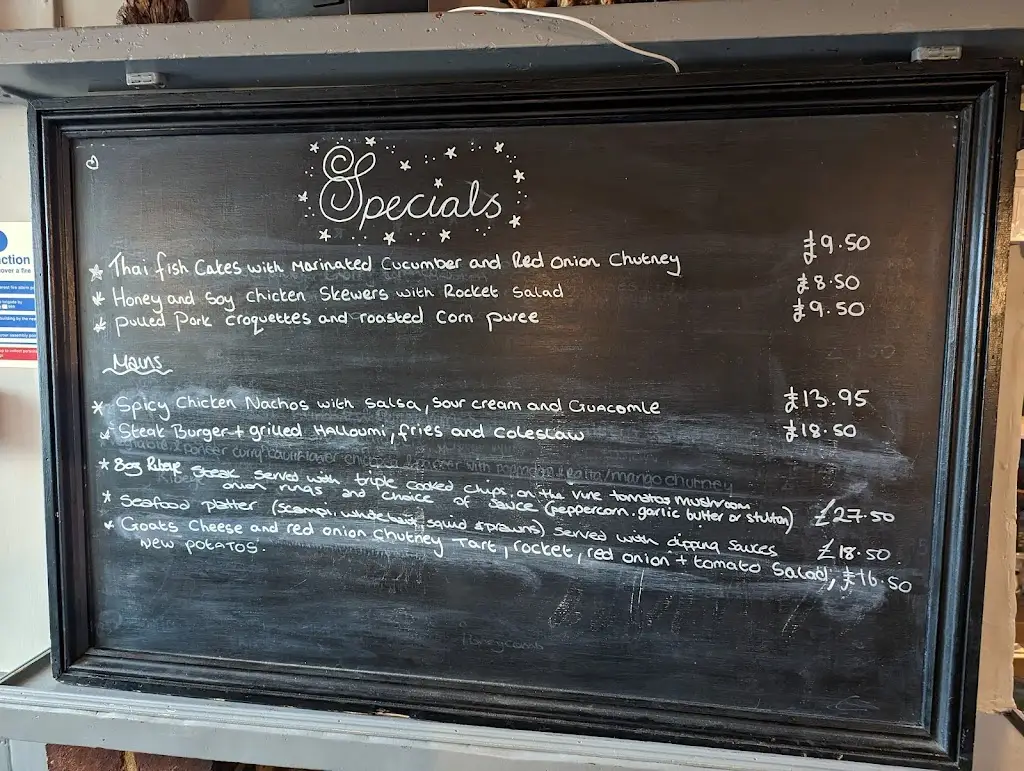 Specials
* Thai fish Cakes with Marinated Cucumber and Red Onion Chutney £9.50
* Honey and Soy Chicken Skewers with Rocket Salad £8.50
* Pulled Pork Croquettes and roasted Corn puree £9.50
Mains
* Spicy Chicken Nachos with Salsa, Sour cream and Guacomle £13.95
* Steak Burger + grilled Halloumi, fries and Coleslaw £18.50
* 8oz Ribeye Steak served with triple cooked chips, on the vine tomatos, mushroom
onion rings and choice of sauce (peppercorn, garlic butter or stilton) £27.50
* Seafood platter (scampi, whitebait, squid & prawns) served with dipping sauces £18.50
* Goats Cheese and red onion Chutney Tart, rocket, red onion + tomato Salad, £16.50
New potatos.
ction
over a fire